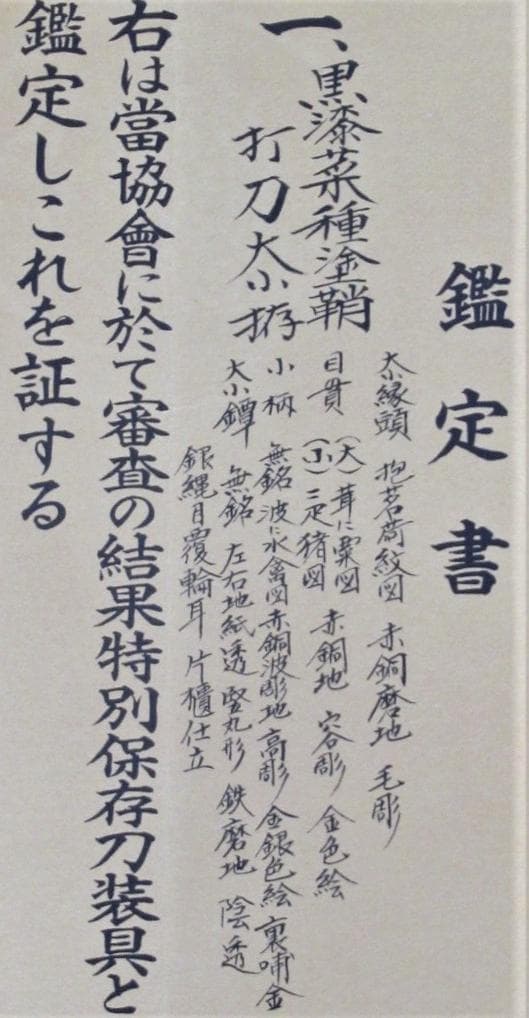 鑑定書
一、黒漆菜種塗鞘
打刀大小拵
大小縁頭 抱茗荷紋図 赤銅磨地 毛彫
目貫 (大) 茸に粟図
(小) 三疋猪図 赤銅地 容彫 金色絵
小柄 無銘 波に水禽図 赤銅波彫地 高彫 金銀色絵 裏哺金
大小鐔 無銘 左右地紙透 竪丸形 鉄磨地 陰透
銀縄目覆輪耳 片櫃仕立
右は當協會に於て審査の結果特別保存刀装具と
鑑定しこれを証する